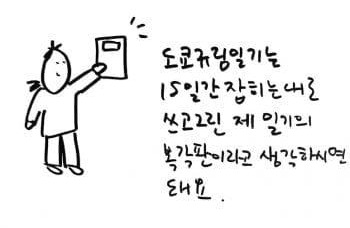 도쿄규림일기는
15일간 잡히는대로
쓰고그린 제 일기의
복각판이라고 생각하시면
돼요.